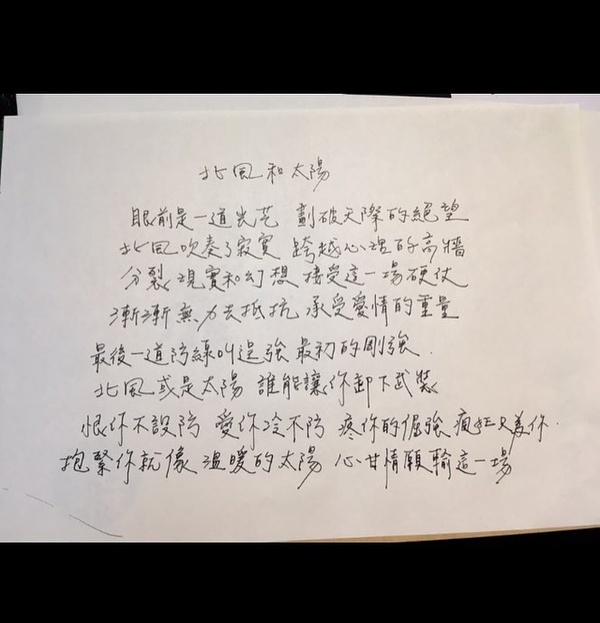 北風和太陽
眼前是一道光芒 劃破天際的絕望
北風吹奏了寂寞 跨越心裡的高牆
分裂現實和幻想 接受這一場硬仗
漸漸無力去抵抗 承受愛情的重量
最後一道防線叫逞強 最初的剛強
北風或是太陽 誰能讓你卸下武裝
恨你不設防 愛你冷不防 疼你的倔強 瘋狂只為你
抱緊你就像溫暖的太陽 心甘情願輸這一場